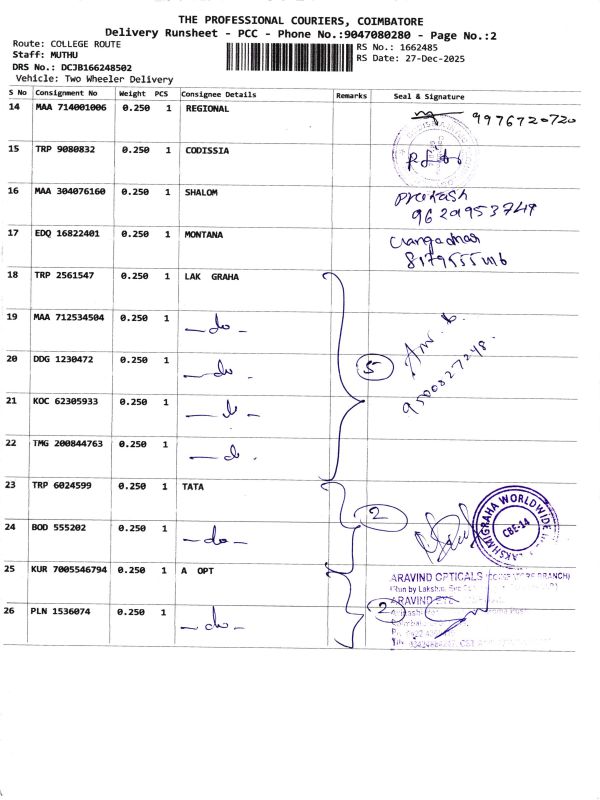 THE PROFESSIONAL COURIERS, COIMBATORE
Delivery Runsheet - PCC - Phone No.:9047080280 - Page No.:2
Route: COLLEGE ROUTE
Staff: MUTHU
DRS No.: DCJB166248502
Vehicle: Two Wheeler Delivery
RS No.: 1662485
RS Date: 27-Dec-2025
S No Consignment No Weight PCS Consignee Details Remarks Seal & Signature
14 MAA 714001006 0.250 1 REGIONAL 9976720720
15 TRP 9080832 0.250 1 CODISSIA
16 MAA 304076160 0.250 1 SHALOM Prakash
9629953749
17 EDQ 16822401 0.250 1 MONTANA
18 TRP 2561547 0.250 1 LAK GRAHA
19 MAA 712534504 0.250 1 - do -
20 DDG 1230472 0.250 1 - do -
5
9500827248
21 KOC 62305933 0.250 1
22 TMG 200844763 0.250 1 - do -
23 TRP 6024599 0.250 1 TATA
2
LAKSHMIGRAHA WORLDWIDE
CBE-14
24 BOD 555202 0.250 1 - do -
25 KUR 7005546794 0.250 1 A OPT
ARAVIND OPTICALS
26 PLN 1536074 0.250 1 - do -
2
ARAVIND EYE